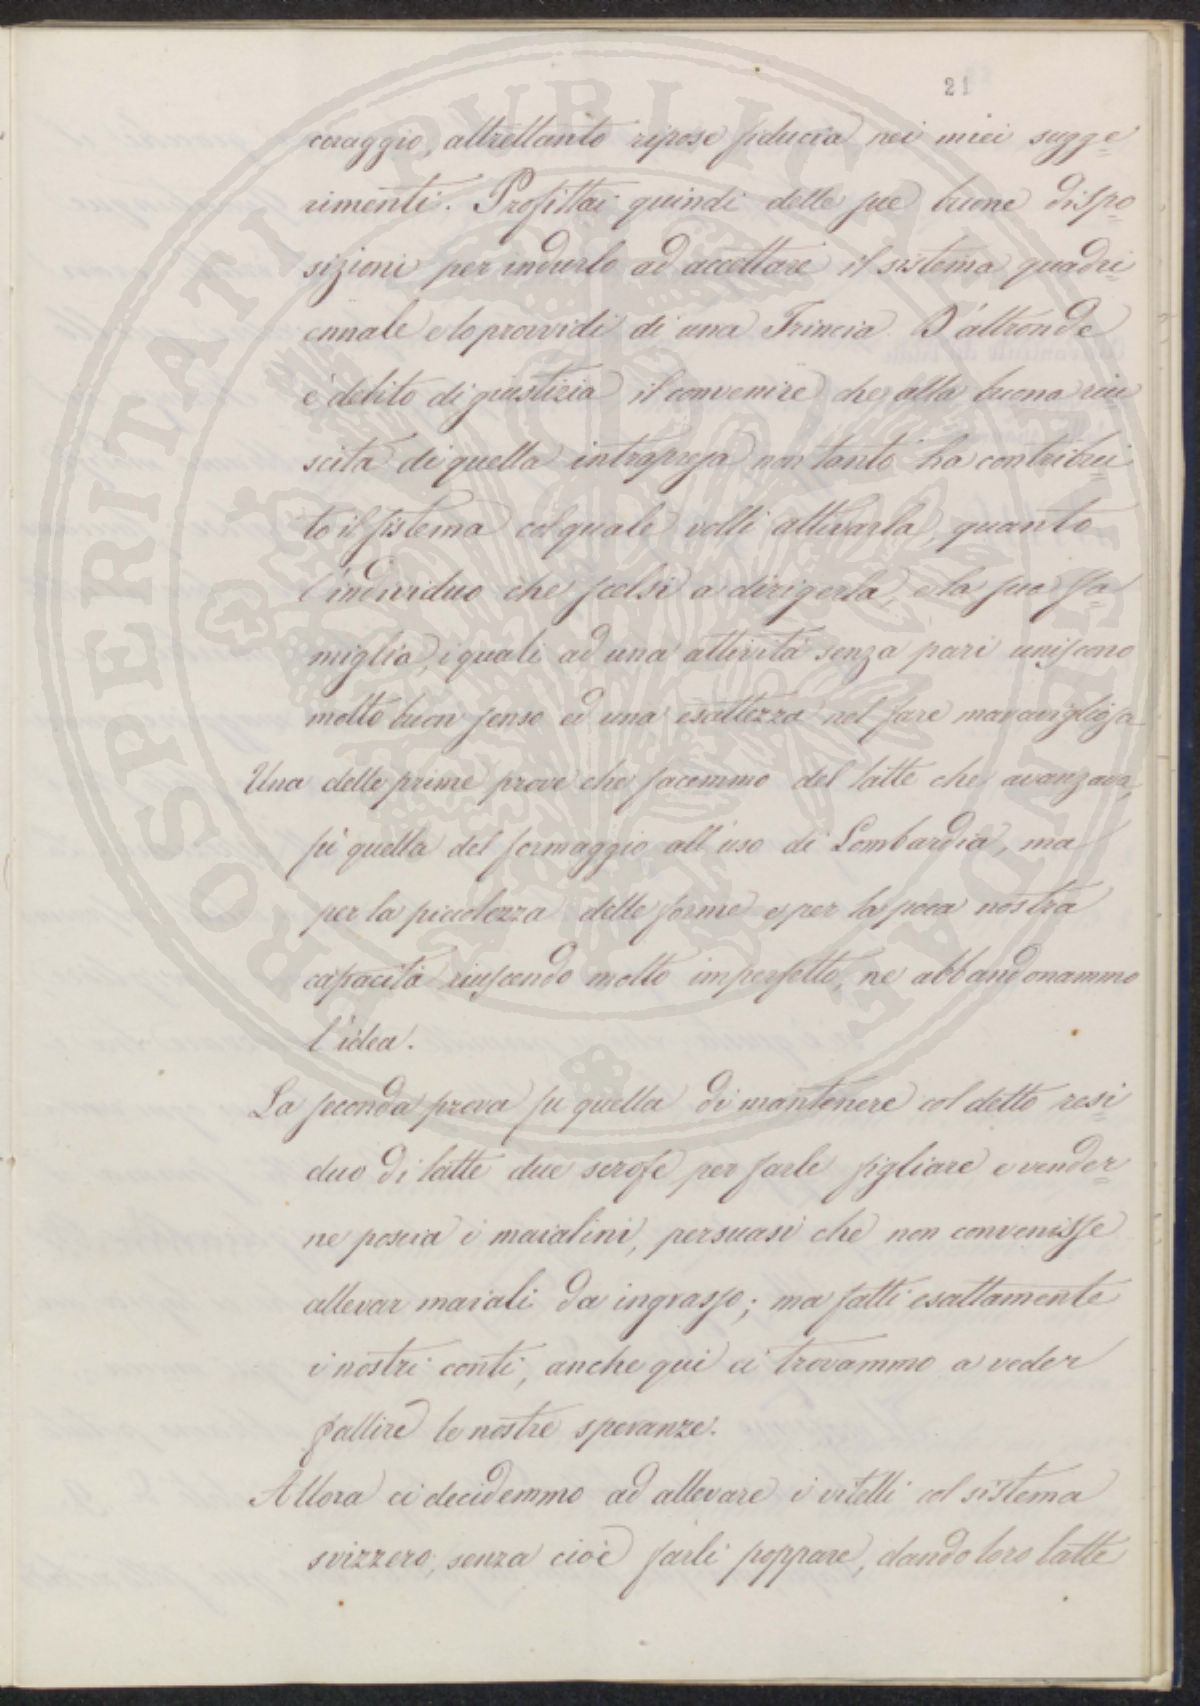 21
coraggio, altrettanto ripose fiducia nei miei sugge=
rimenti. Profittai quindi delle sue buone dispo=
sizioni per indurlo ad accettare il sistema quadri=
ennale e lo provvidi di una Trincia. D'altronde
è debito di giustizia il convenire che alla buona riu
scita di quella intrapresa non tanto ha contribui=
to il sistema col quale volli attivarla, quanto
l'individuo che scelsi a dirigerla, e la sua fa=
miglia, i quali ad una attività senza pari uniscono
molto buon senso ed una esattezza nel fare maravigliosa
Una delle prime prove che facemmo del latte che avanzava,
fù quella del formaggio all'uso di Lombardia, ma
per la piccolezza delle forme e per la poca nostra
capacità riuscendo molto imperfetto, ne abbandonammo
l'idea.
La seconda prova fu quella di mantenere col detto resi=
duo di latte due scrofe per farle figliare e vender=
ne poscia i maialini, persuasi che non convenisse
allevar maiali da ingrasso; ma fatti esattamente
i nostri conti, anche qui ci trovammo a veder
fallire le nostre speranze.
Allora ci decidemmo ad allevare i vitelli col sistema
svizzero, senza cioè farli poppare, dando loro latte
PROSPERITATI PUBLICAE AUGENDAE